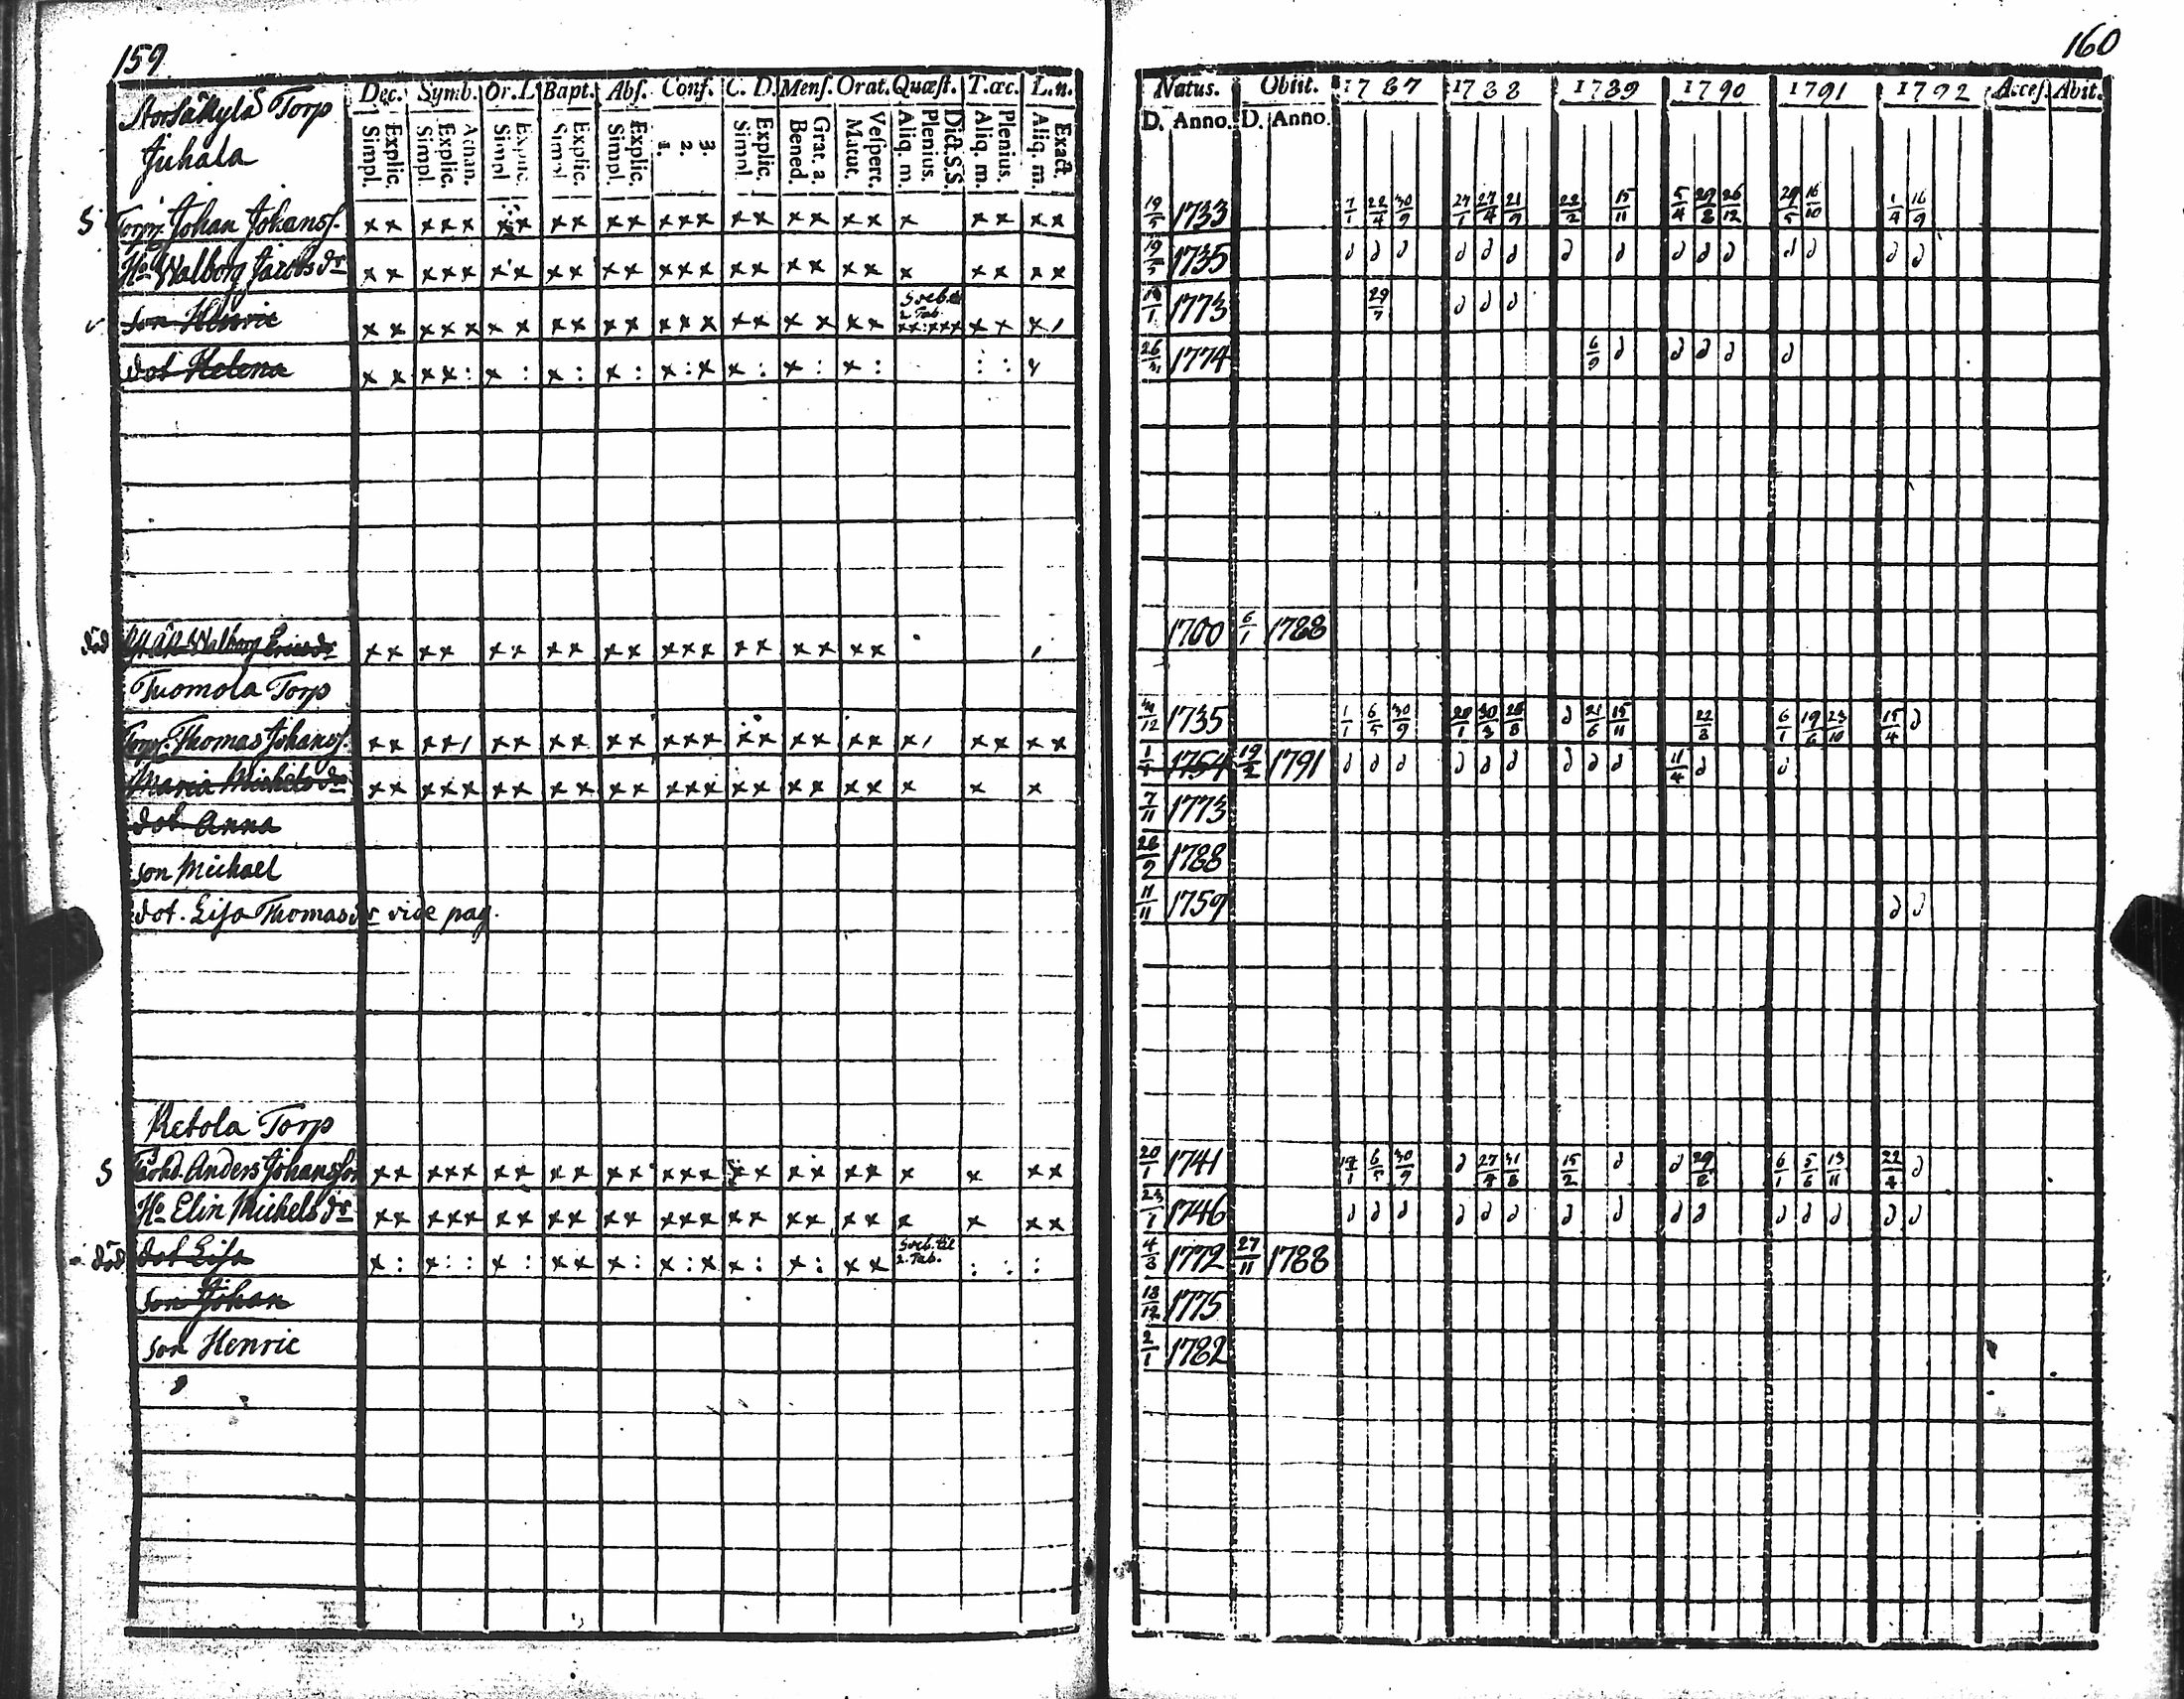 159
Torp
Juhala
Dec. Symb. Or. D. Bapt. Abs. Conf. C. D. Mens. Orat. Quæst. T. œc. L. n.
Simpl. Explic. Simpl. Explic. Athan. Simpl. Explic. Simpl. Explic. Simpl. Explic. 1. 2. 3. Simpl. Explic. Bened. Grat. a. Matut. Vespert. Aliq. m. Plenius. Dict. S.S. Aliq. m. Plenius. Aliq. m. Exact.
S Torpr. Johan Johanss. xx xxx xx xx xx xxx xx xx xx x xx xx
Ho Walborg Jacobs dr xx xxx xx xx xx xxx xx xx xx x xx xx
son Henric xx xxx xx xx xx xxx xx xx xx 2 Tab. xx
dot Helena xx xx: x: x: x: x:x x: x: x: : :
död Walborg Ericsdr xx xx xx xx xx xxx xx xx xx
Tuomola Torp
Torpr. Thomas Johanss. xx xx/ xx xx xx xxx xx xx xx x/ xx xx
Maria Michels dr xx xxx xx xx xx xxx xx xx xx x x x
dot Anna
son Michael
dot. Lisa Thomasdr vide pag.
Retola Torp
S Anders Johansson xx xxx xx xx xx xxx xx xx xx x x xx
Ho Elin Michels dr xx xxx xx xx xx xxx xx xx xx x x xx
död dot Lisa x: x:: x: xx x: x:x x: x: xx 2. Tab. : : :
son Johan
son Henric
160
Natus. Obiit. 1787 1788 1789 1790 1791 1792 Acces. Abit.
D. Anno. D. Anno.
19/5 1733 7/1 22/4 30/9 27/1 27/4 21/9 22/2 15/11 5/4 29/8 26/12 29/5 16/10 1/4 16/9
19/5 1735 d d d d d d d d d d d d d d d
1773 29/7 d d d
26/ 1774 6/9 d d d d d
1700 6/1 1788
/12 1735 1/1 6/5 30/9 20/1 30/3 28/8 d 21/6 15/11 22/8 6/1 19/6 23/10 15/4 d
1754 19/2 1791 d d d d d d d d d 11/4 d d
7/11 1773
28/9 1788
11/11 1759 d d
20/1 1741 /1 6/5 30/9 d 27/4 31/8 15/2 d d 29/8 6/1 5/6 13/11 22/4 d
23/1 1746 d d d d d d d d d d d d d d d
4/3 1772 27/11 1788
18/12 1775
2/1 1782